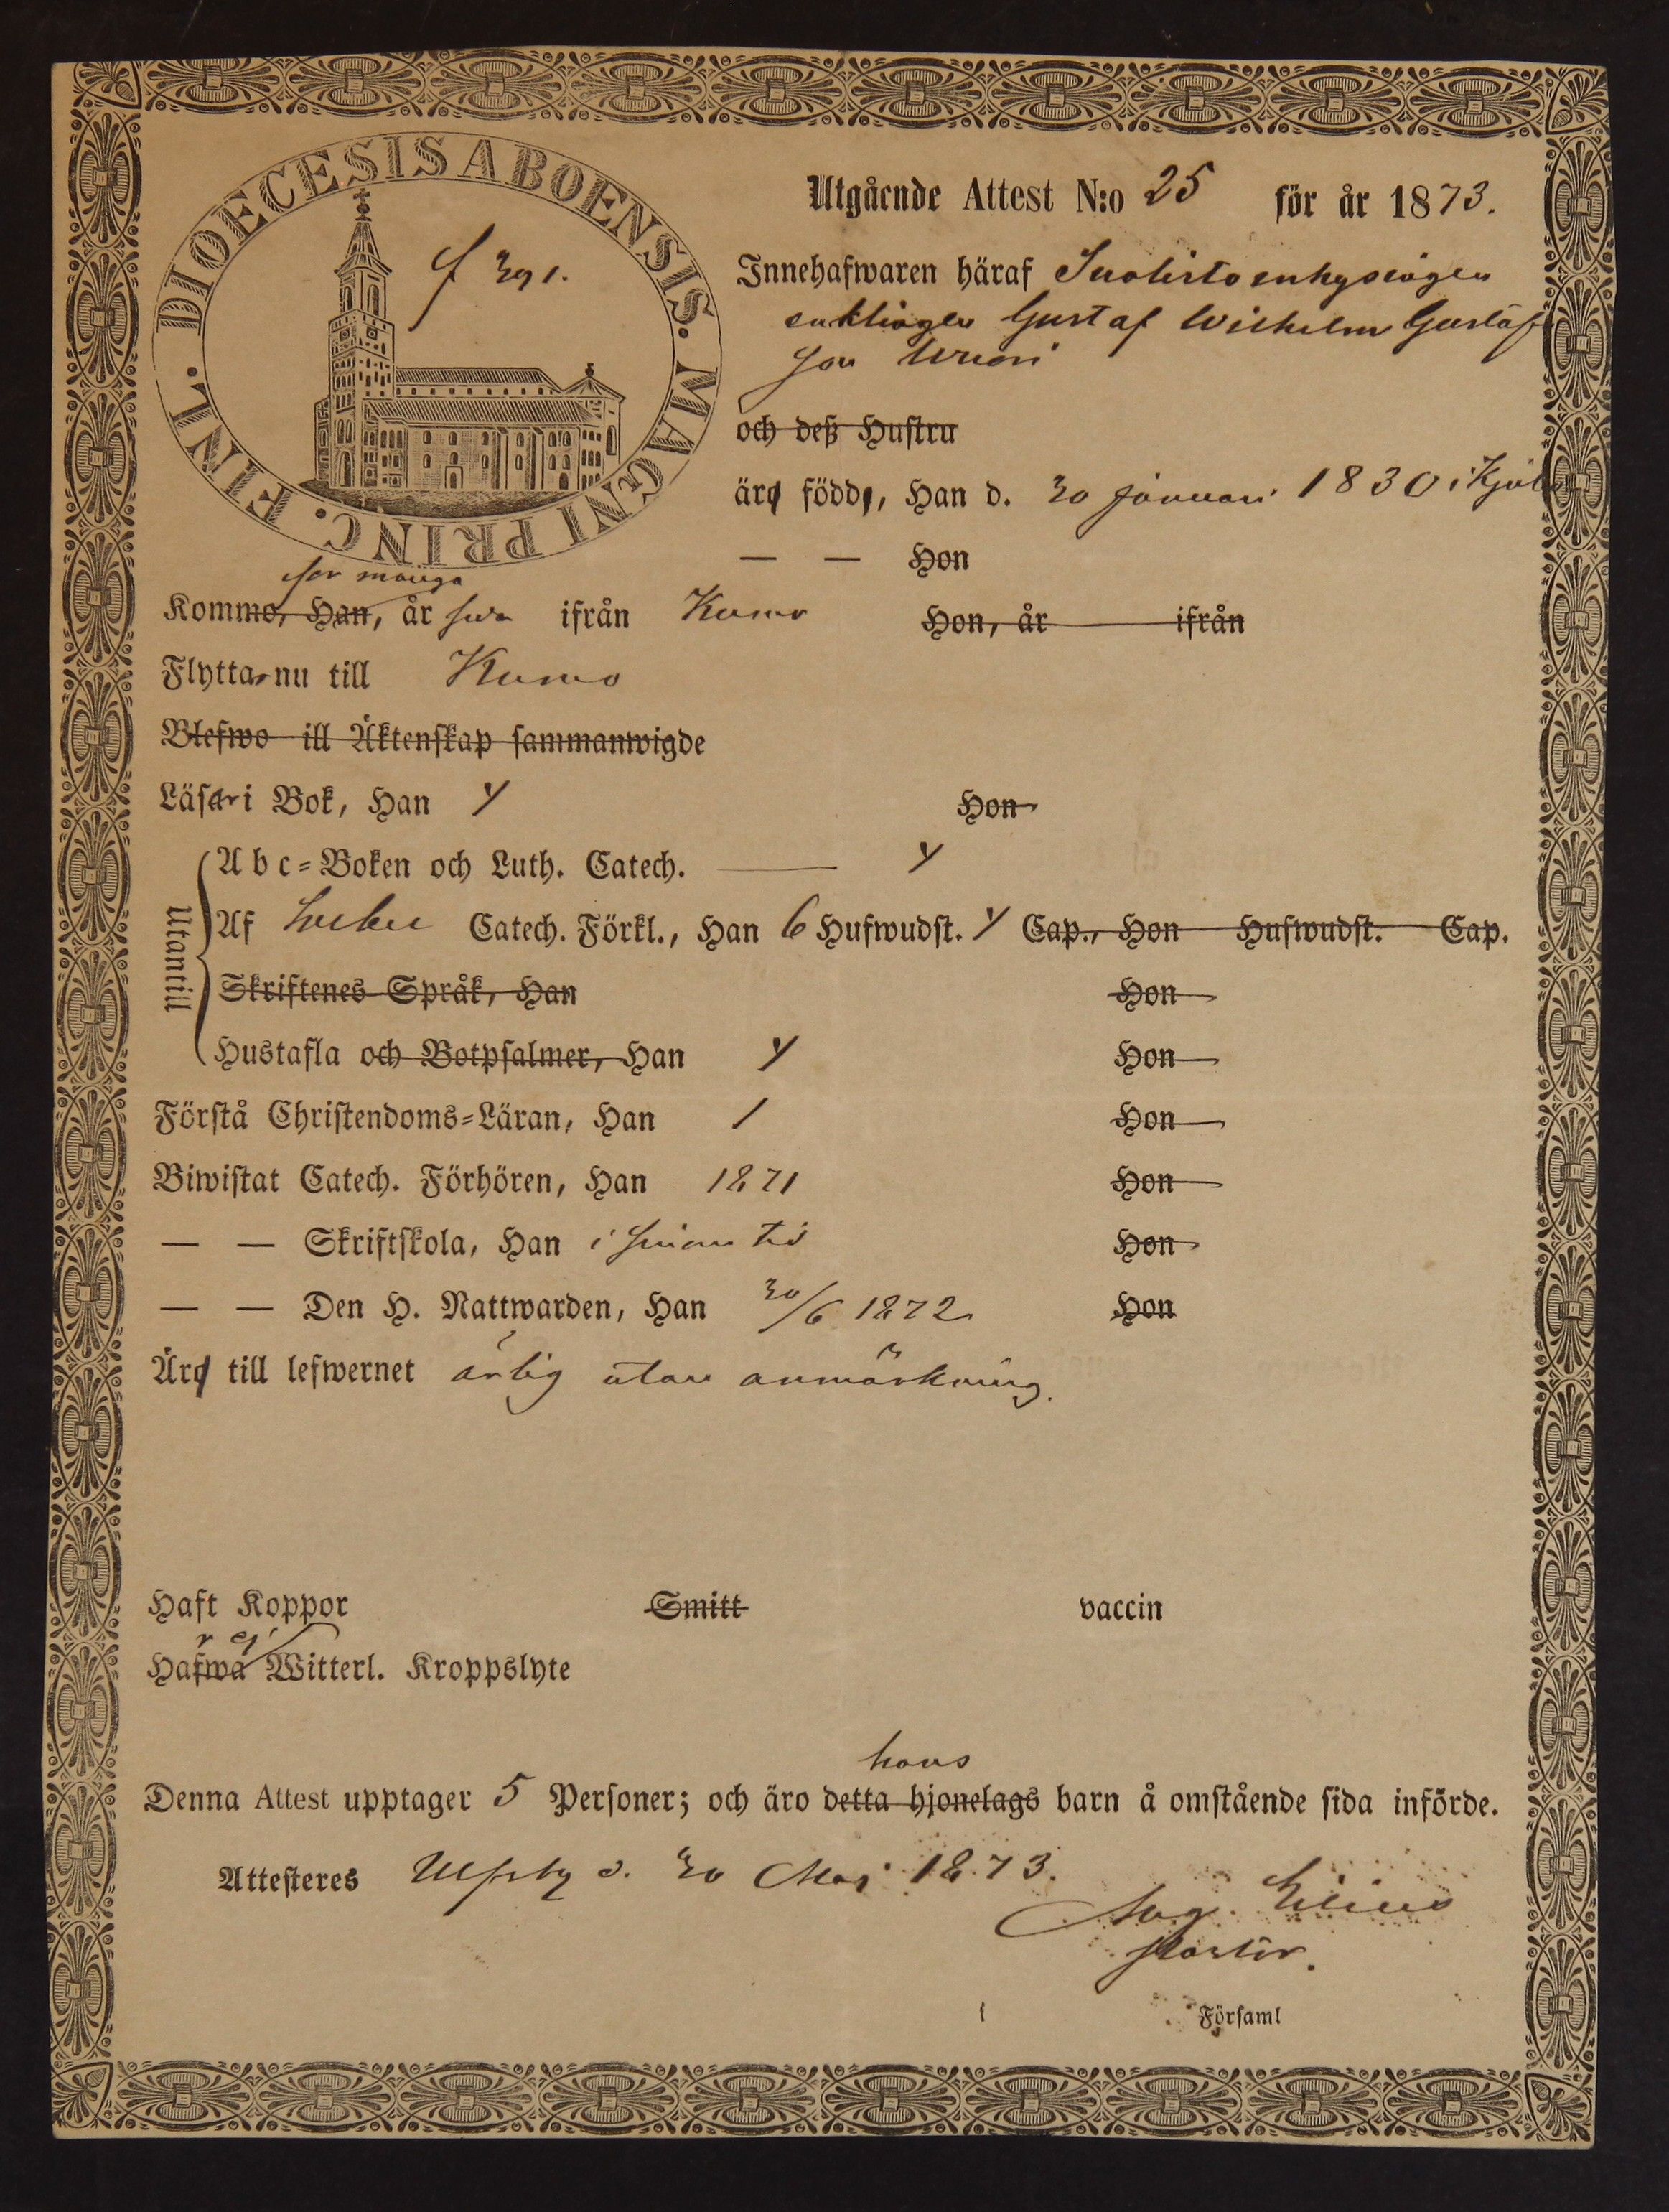 DIOECESIS ABOENSIS. MAGNI PRINC. FINL.
f 391.
Utgående Attest N:o 25 för år 1873.
Innehafwaren häraf
enklingen Gustaf Wilhelm Gustafs
son
och deß Hustru
äro födde, Han d. 30 januari 1830 i
— — Hon
för många
Komme, Han, år sedan ifrån Kumo Hon, år ifrån
Flytta nu till Kumo
Blefwo ill Äktenskap sammanwigde
Läsa i Bok, Han y Hon
Utantill
Abc=Boken och Luth. Catech. y
Af Catech. Förkl., Han 6 Hufwudst. y Cap., Hon Hufwudst. Cap.
Skriftenes Språk, Han Hon
Hustafla och Botpsalmer, Han y Hon
Förstå Christendoms=Läran, Han / Hon
Biwistat Catech. Förhören, Han 1871 Hon
— — Skriftskola, Han i sinom tid Hon
— — Den H. Nattwarden, Han 30/6 1872 Hon
Äro till lefwernet ärlig utan anmärkning.
Haft Koppor Smitt vaccin
r ej
Hafwa Witterl. Kroppslyte
hans
Denna Attest upptager 5 Personer; och äro detta hjonelags barn å omstående sida införde.
Attesteres Ulfsby d. 30 Maj 1873.
Aug. Lilius
Pastor.
i Församl